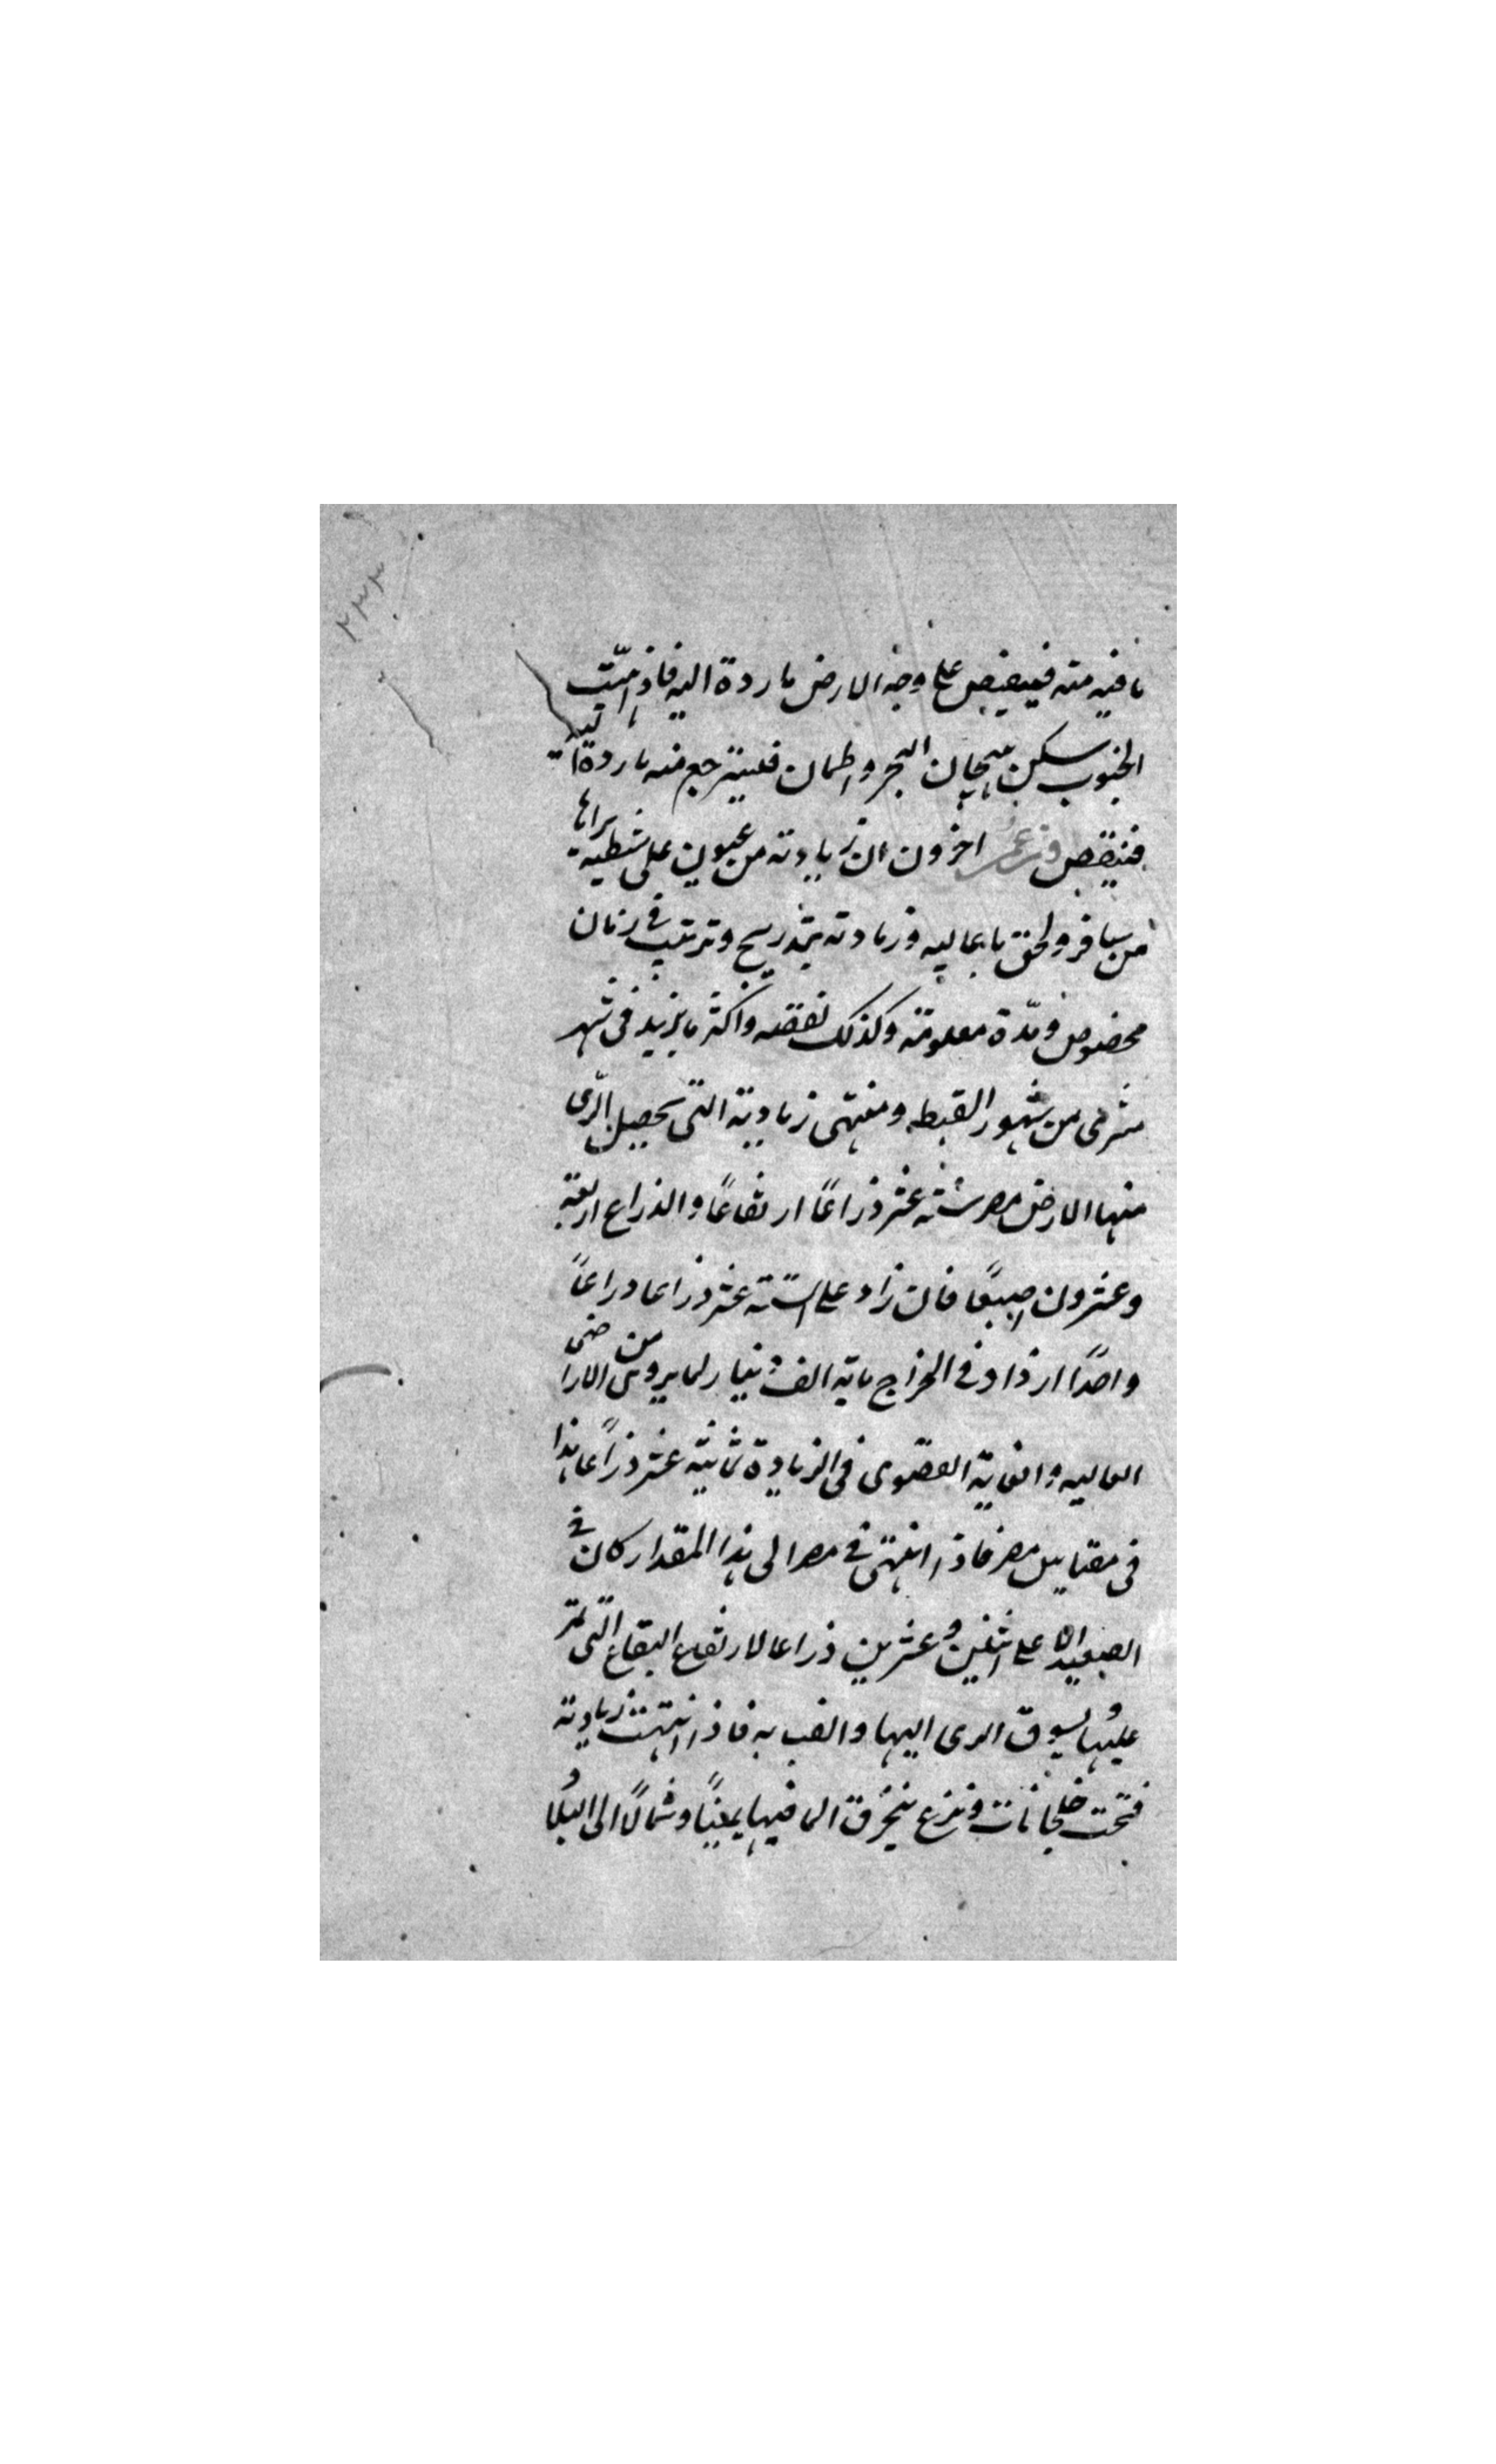 ۲۳۳
ما فيه منه فيفيض على وجه الارض ما رده اليه فاذا هبّت
الجنوب سكن هيجان البحر واطمان فليسترجع منه ما رده اليه
فينقص وزعم اخرون ان زيادته من عيون على شطيه يراها
من سافر ولحق باعاليه وزيادته بتدريج وترتيب فى زمان
مخصوص ومدّة معلومة وكذلك نقصه واكثر ما يزيد فى شهر
مسرى من شهور القبط ومنتهى زيادته التى يحصل الرّى
منها الارض مصر ستة عشر ذراعًا ارتفاعًا والذراع اربعة
وعشرون اصبعًا فان زاد على الستّة عشر ذراعا دراعًا
واحدًا ازداد فى الخراج ماية الف دينار لما يروى من الاراضى
العاليه والغاية القصوى فى الزيادة ثمانية عشر ذراعًا هذا
فى مقياس مصر فاذا انتهى فى مصر الى هذا المقدار كان فى
الصعيد الاعلى اثنين وعشرين ذراعا لارتفاع البقاع التى تمر
عليها ويسوق الرى اليها والف به فاذا انتهت زيادته
فتحت خلجانات وترع يتخرق الما فيها يمينًا وشمالًا الى البلاد